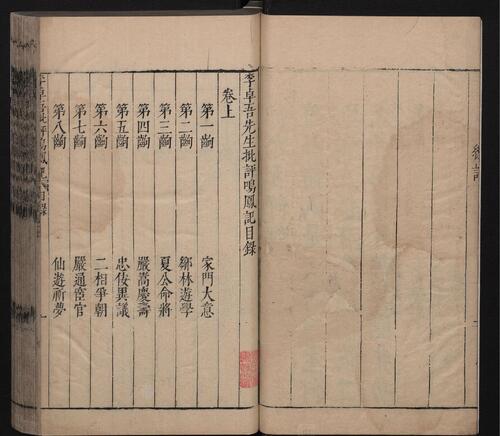 李卓吾先生批評鳴鳳記目錄
卷上
第一齣 家門大意
第二齣 鄒林遊學
第三齣 夏公命將
第四齣 嚴嵩慶壽
第五齣 忠佞異議
第六齣 二相爭朝
第七齣 嚴通宦官
第八齣 仙遊祈夢
李卓吾批評鳴鳳記 目錄 一